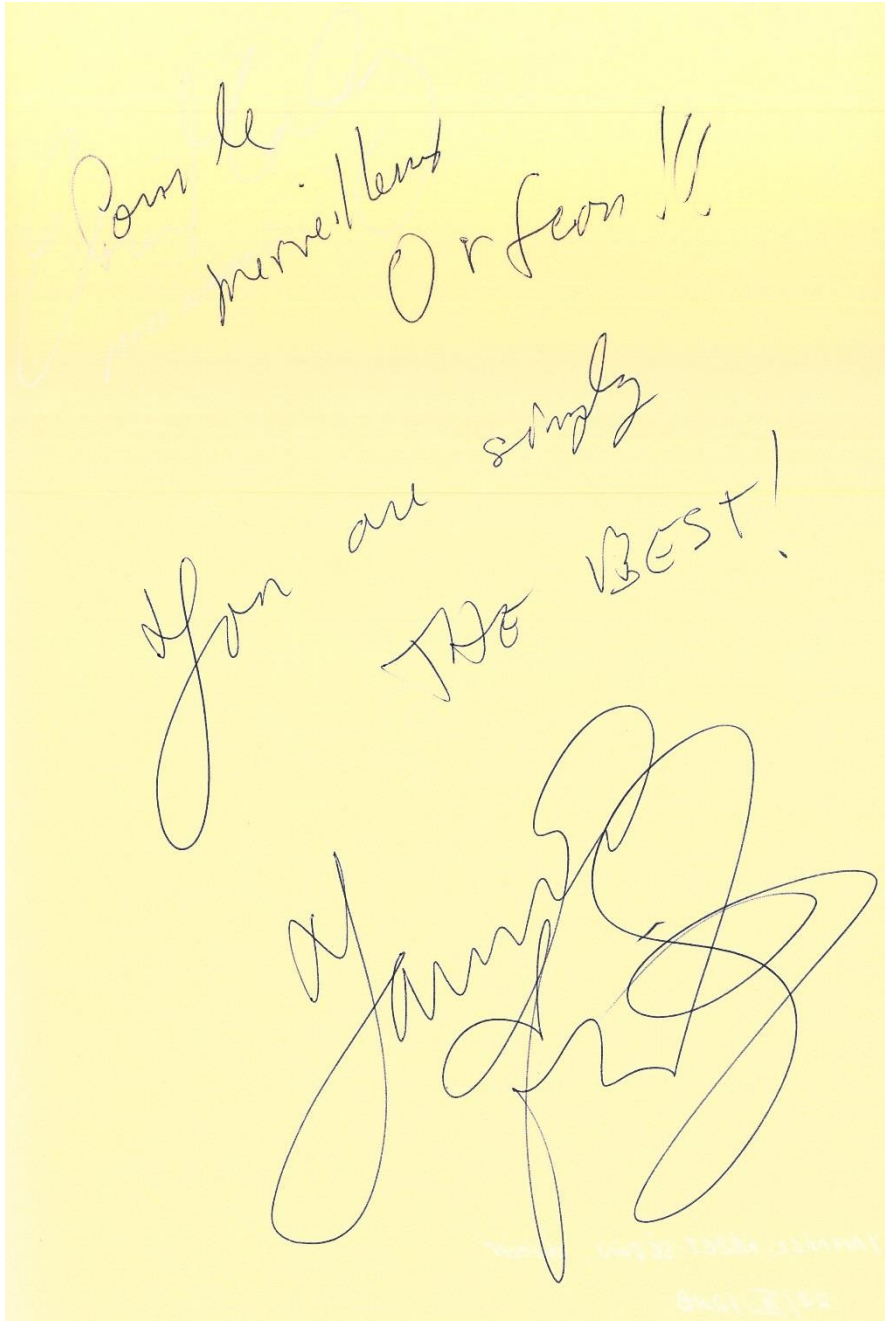 Pour le
merveilleux
Orfeon!!!
You are simply
THE BEST!
Yannick